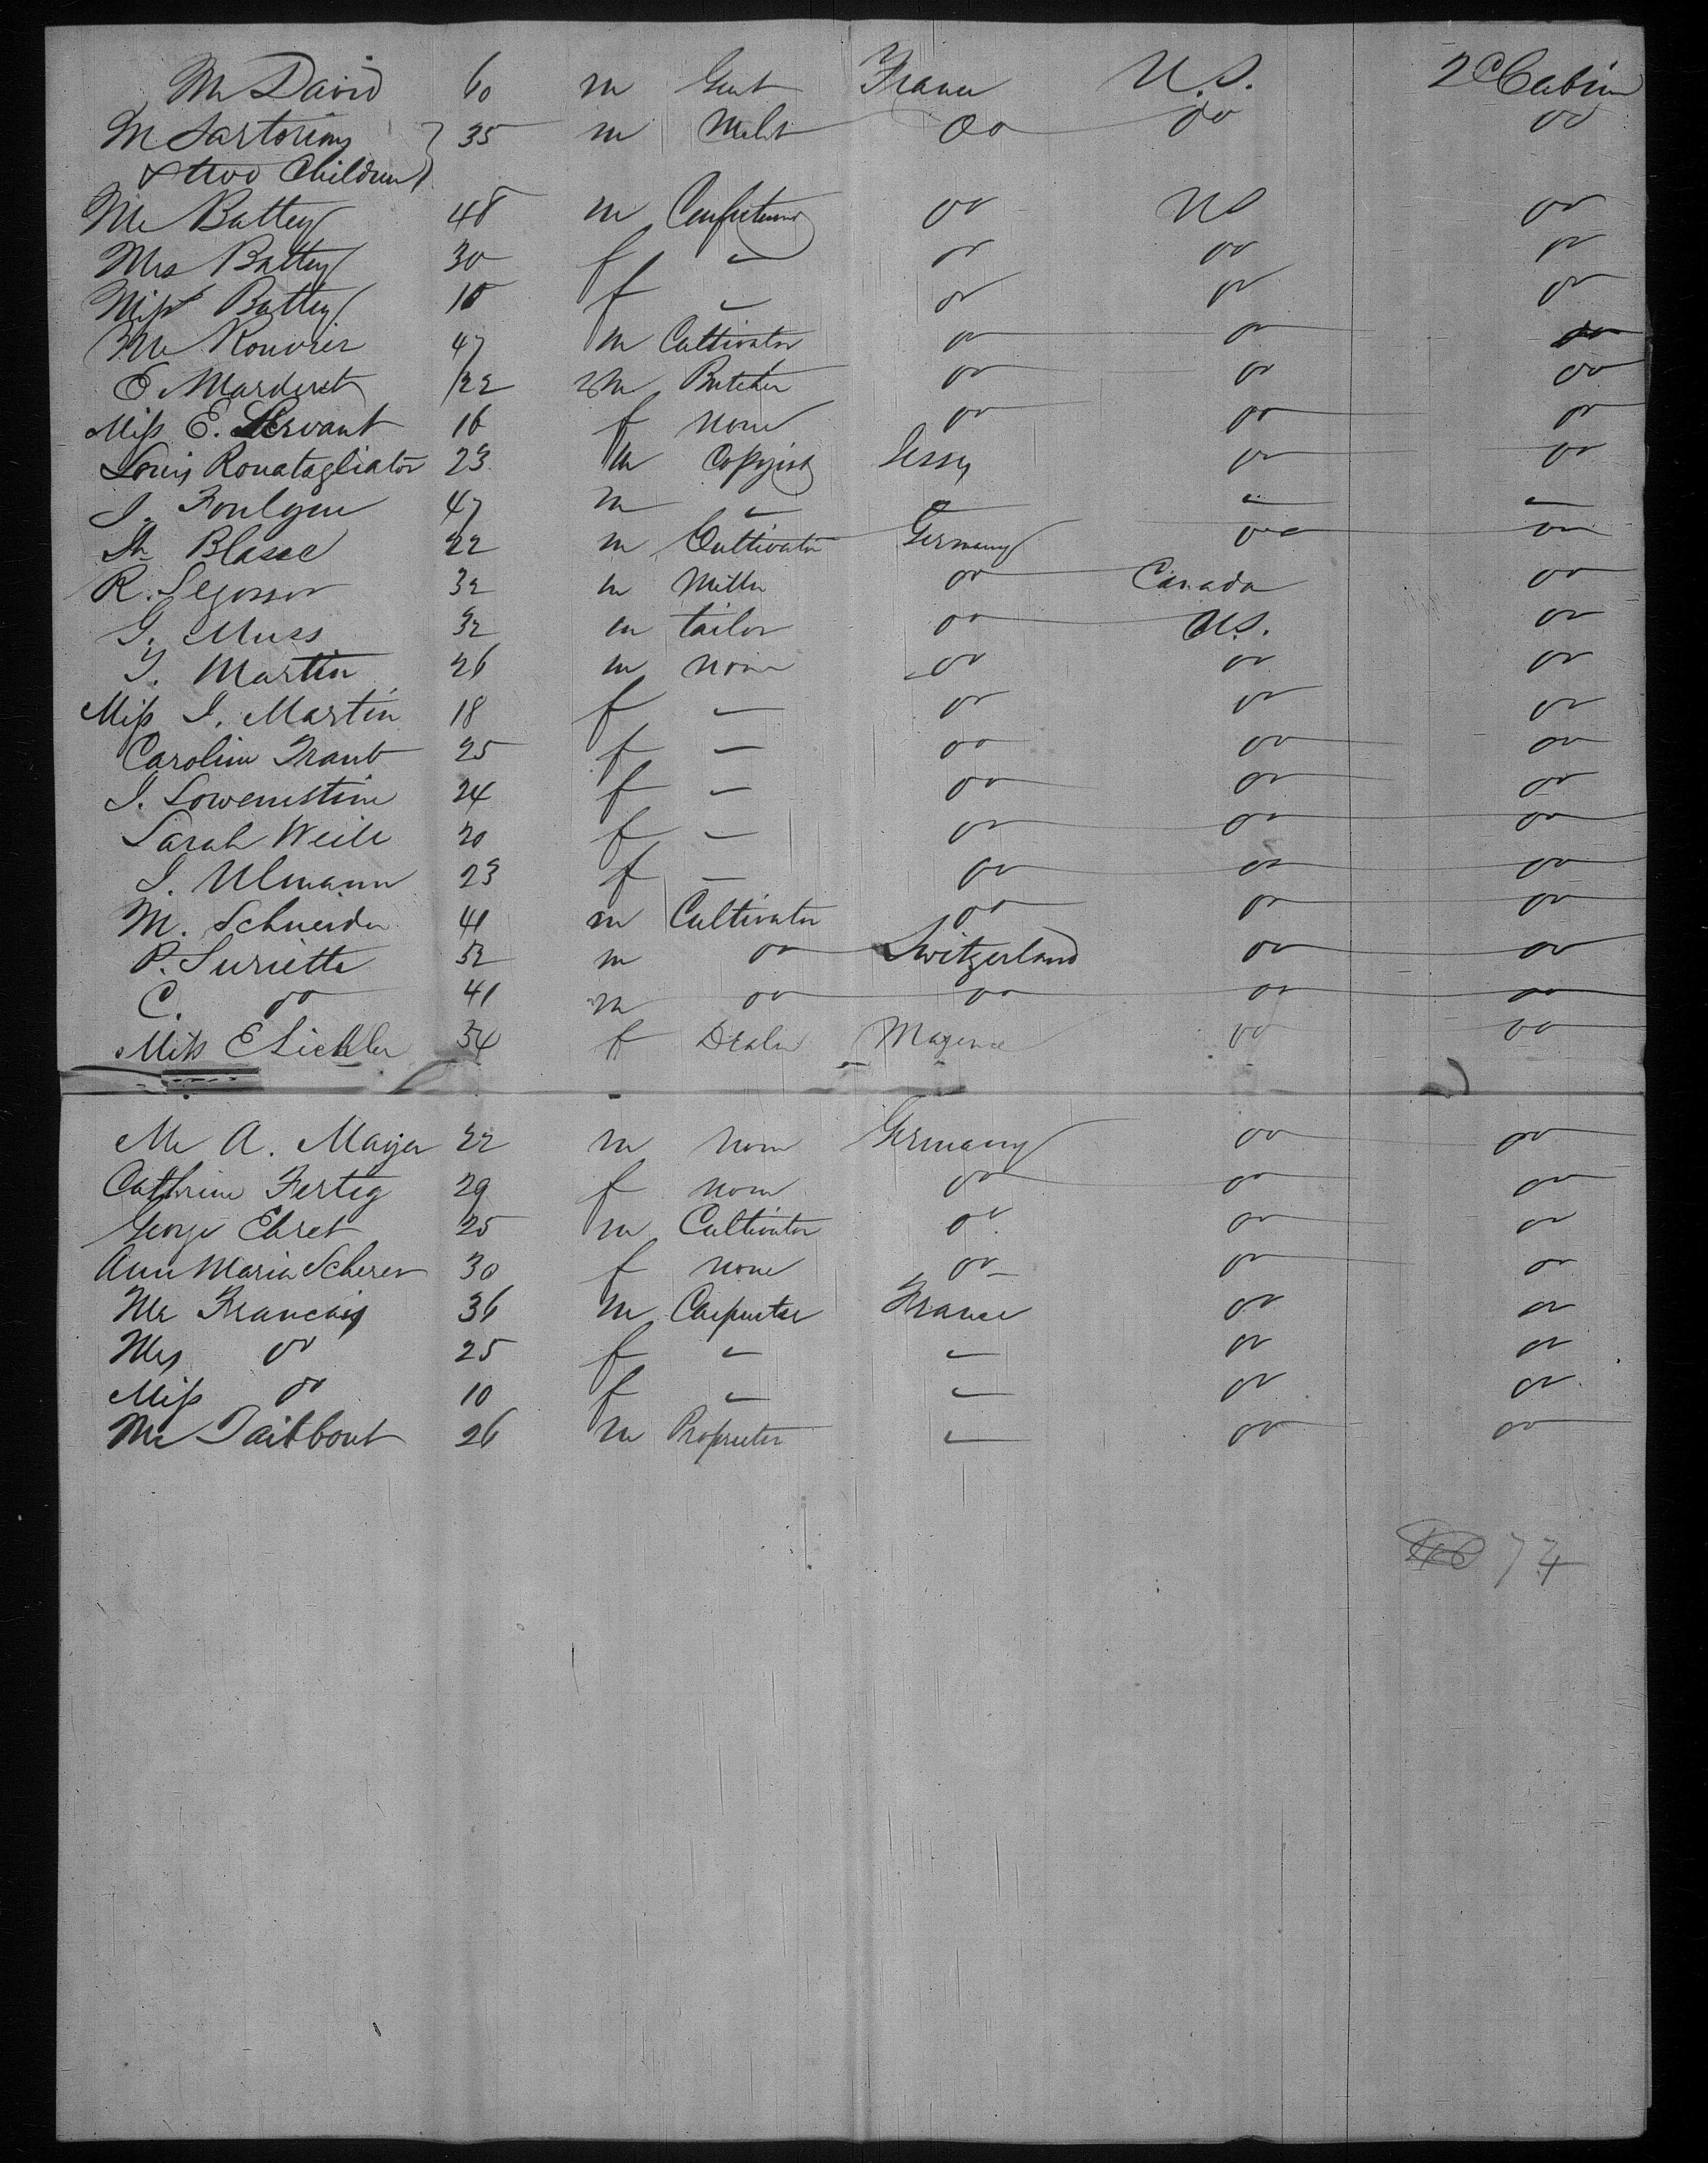 M David 60 m Gent France U.S. 2d Cabin
M Sartorius } 35 m Mcht do do do
& two Children }
Mr Battey 48 m do US do
Mrs Battey 30 f " do do do
Miss Battey 10 f " do do do
Mr Rouvier 47 m Cultivator do do do
E Marderet 22 m Butcher do do do
Miss E. Servant 16 f none do do do
Louis 23 m Copyist do do
J. 47 m " " " "
Blasse 22 m Cultivator Germany do do
R. 32 m Miller do Canada do
G. Muss 32 m tailor do U.S. do
J. Martin 26 m none do do do
Miss J. Martin 18 f " do do do
Caroline Traub 25 f " do do do
J. Lowenstine 24 f " do do do
Sarah Weile 20 f " do do do
J. Ulmann 23 f " do do do
M. Schneider 41 m Cultivator do do do
P. Luriette 52 m do Switzerland do do
C. do 41 m do do do do
Miss E Sickler 34 f Dealer Mayence do do
Mr A. Mayer 22 m none Germany do do
Cathrine Fertig 29 f none do do do
George Ehret 25 m Cultivator do do do
Ann Maria Scherer 30 f none do do do
Mr Francois 36 m Carpenter France do do
Mrs do 25 f " " do do
Miss do 10 f " " do do
Mr Taitbout 26 m Proprieter " do do
74